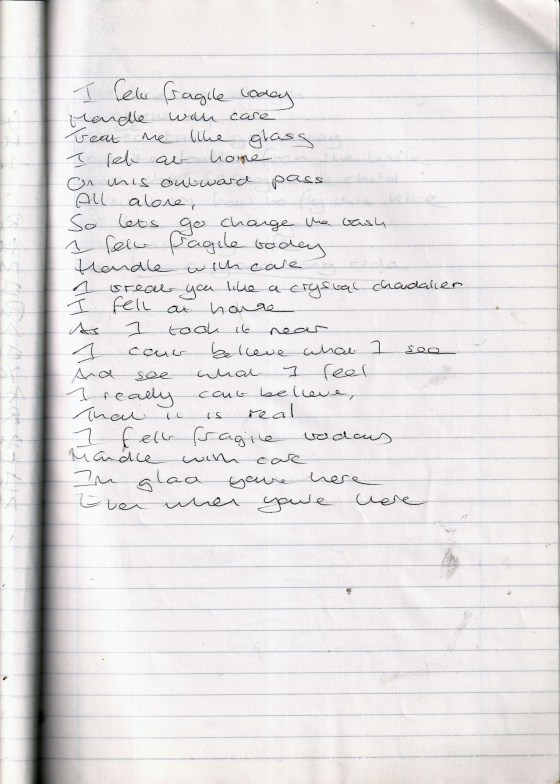 I felt fragile today
Handle with care
Treat me like glass
I felt at home
On this outward pass
All alone,
So lets go change the
I felt fragile today
Handle with care
I treat you like a crystal chandalier
I felt at home
As I took it near
I cant believe what I see
And see what I feel
I really cant believe,
That it is real
I felt fragile today
Handle with care
Im glad youre here
Even when youre here